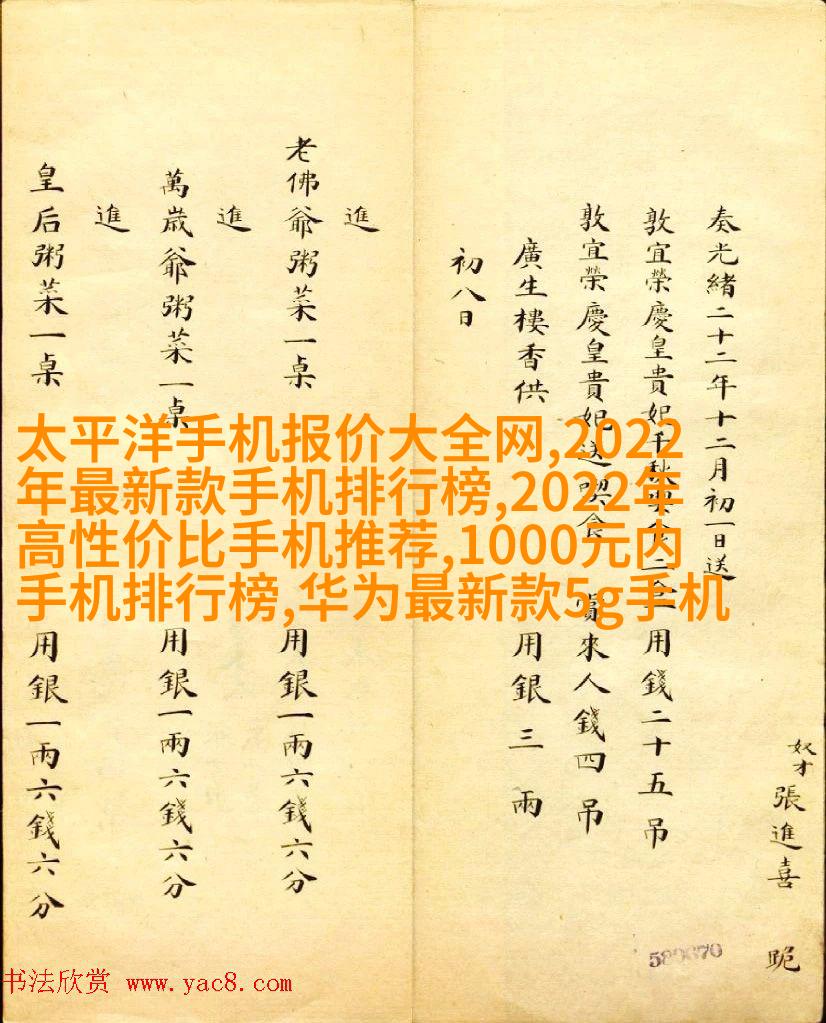 奴才張進喜 跪
奏光緒二十二年十二月初一日送
敦宜榮慶皇貴妃千秋食二 用錢二十五吊
敦宜榮慶皇貴妃送喫食 賞來人錢四吊
廣生樓香供 用銀三兩
初八日
進
老佛爺粥菜一桌 用銀一兩六錢六分
進
萬歲爺粥菜一桌 用銀一兩六錢六分
進
皇后粥菜一桌 用銀一兩六錢六分
太平洋手机报价大全网,2022
年最新款手机排行榜,2022年
高性价比手机推荐,1000元内
手机排行榜,华为最新款5g手机
书法欣赏 www.yac8.com